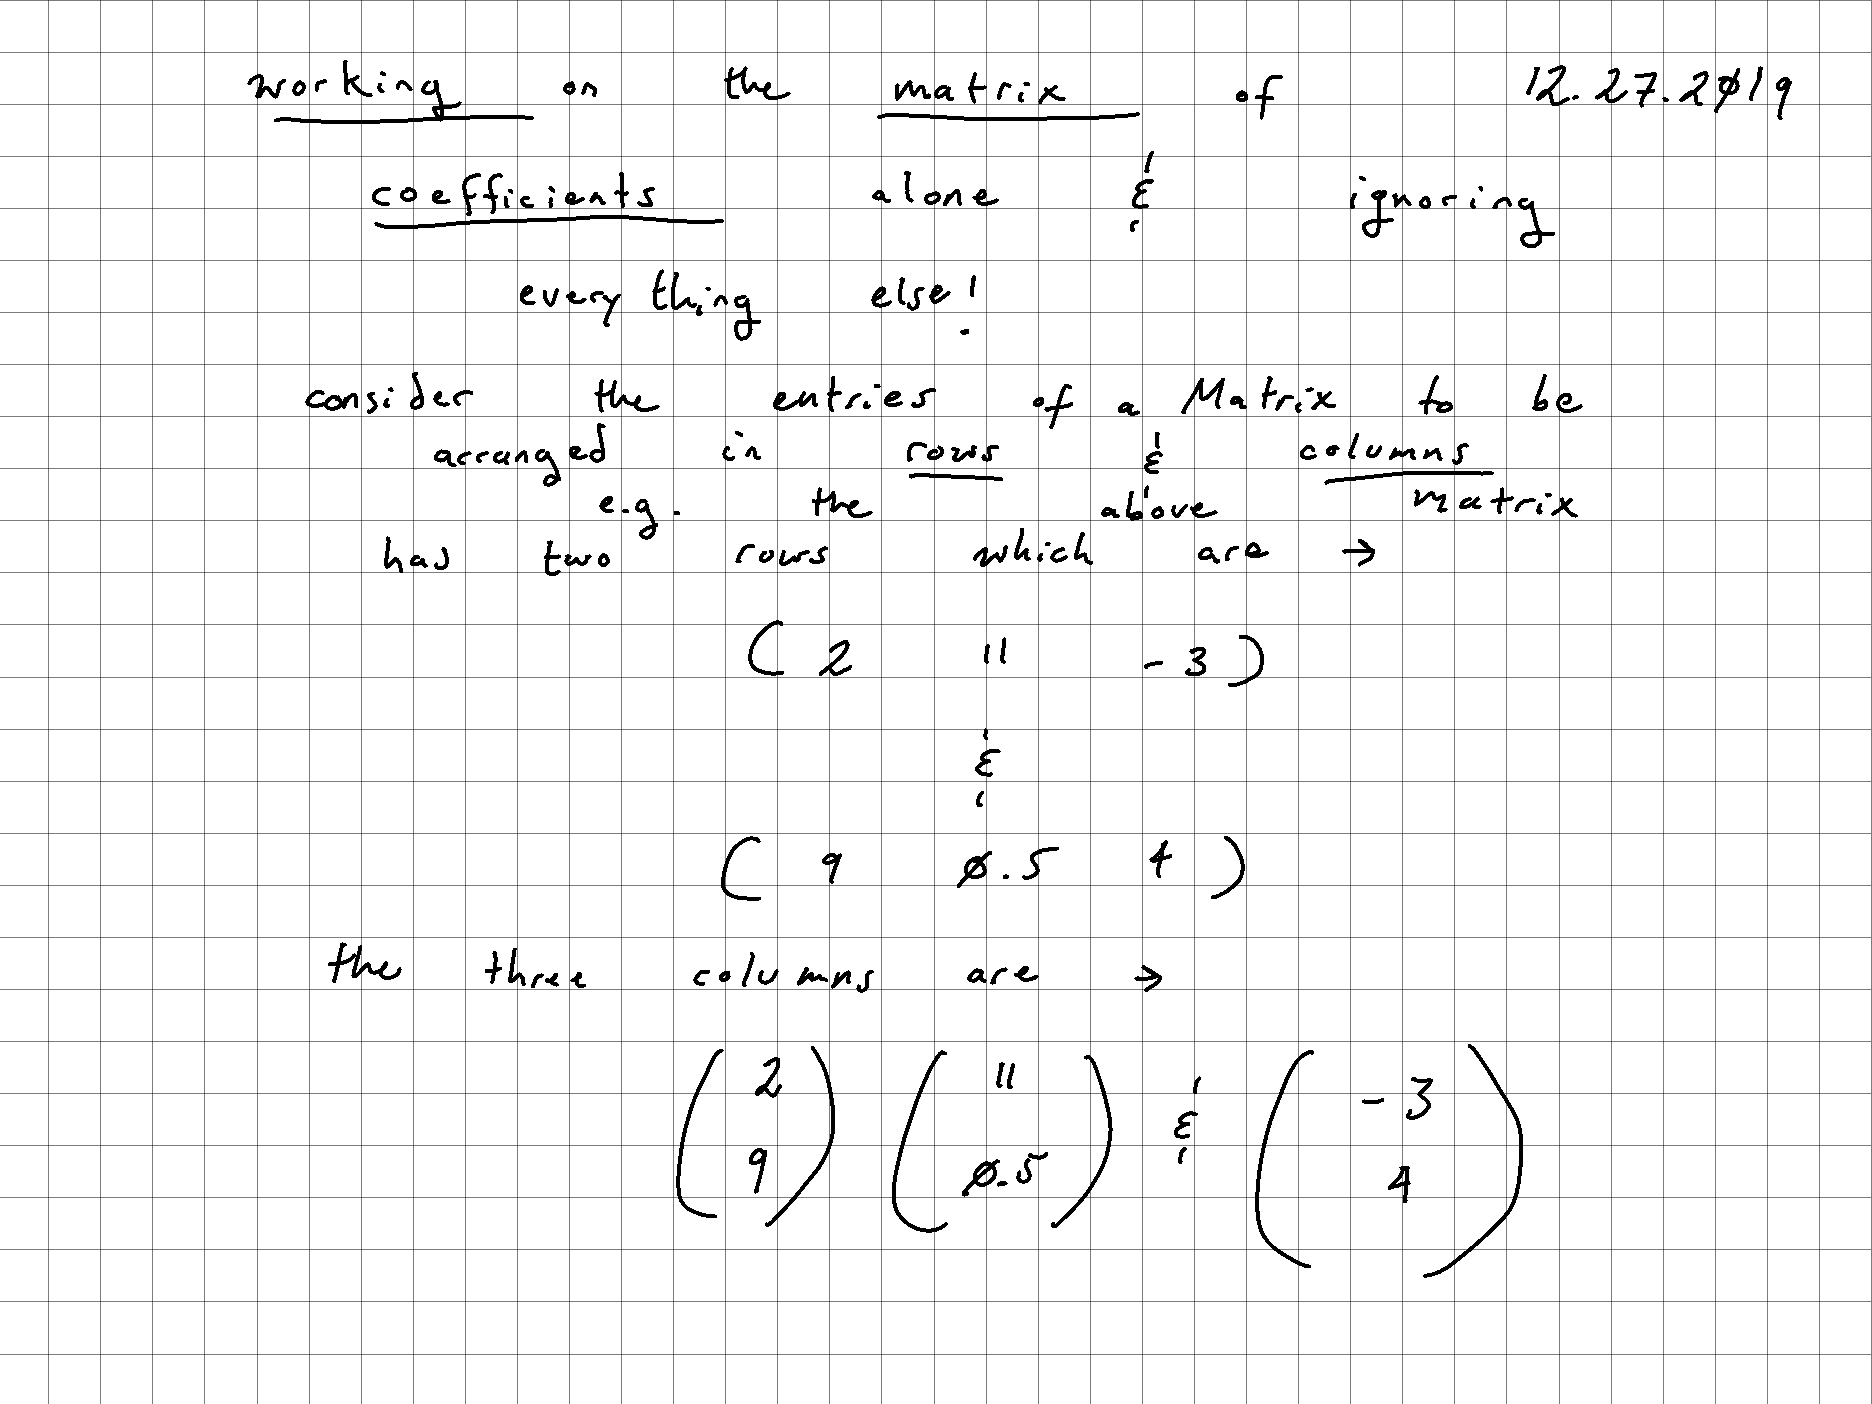 working on the matrix of 12.27.2019
coefficients alone & ignoring
everything else!
consider the entries of a Matrix to be
arranged in rows & columns
e.g. the above matrix
has two rows which are →
( 2 11 -3 )
&
( 9 0.5 4 )
the three columns are →
( 2 ) ( 11 ) & ( -3 )
( 9 ) ( 0.5 ) ( 4 )